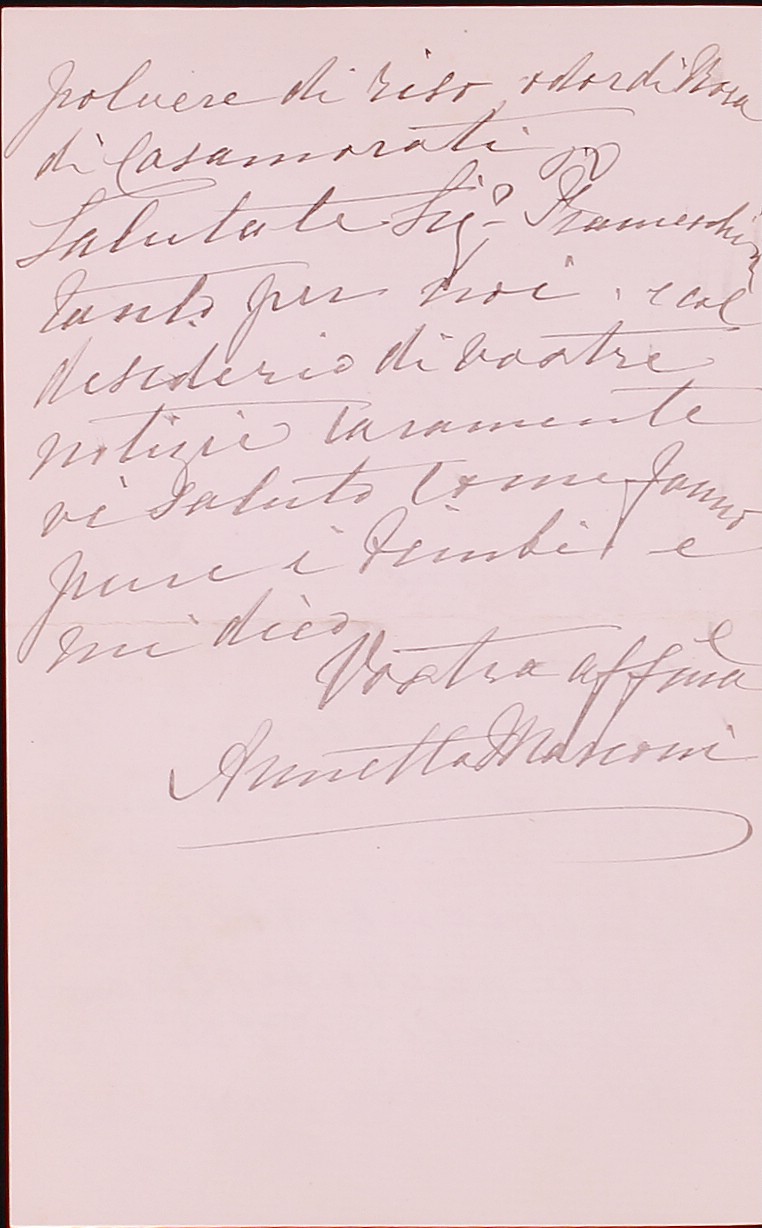 polvere di riso odor di Rosa
di Casamorati
Salutate Sig.a
tanto per noi. e col
desiderio di vostre
notizie caramente
vi saluto come fanno
pure i bimbi e
mi dico
Vostra affma
Annetta Marconi